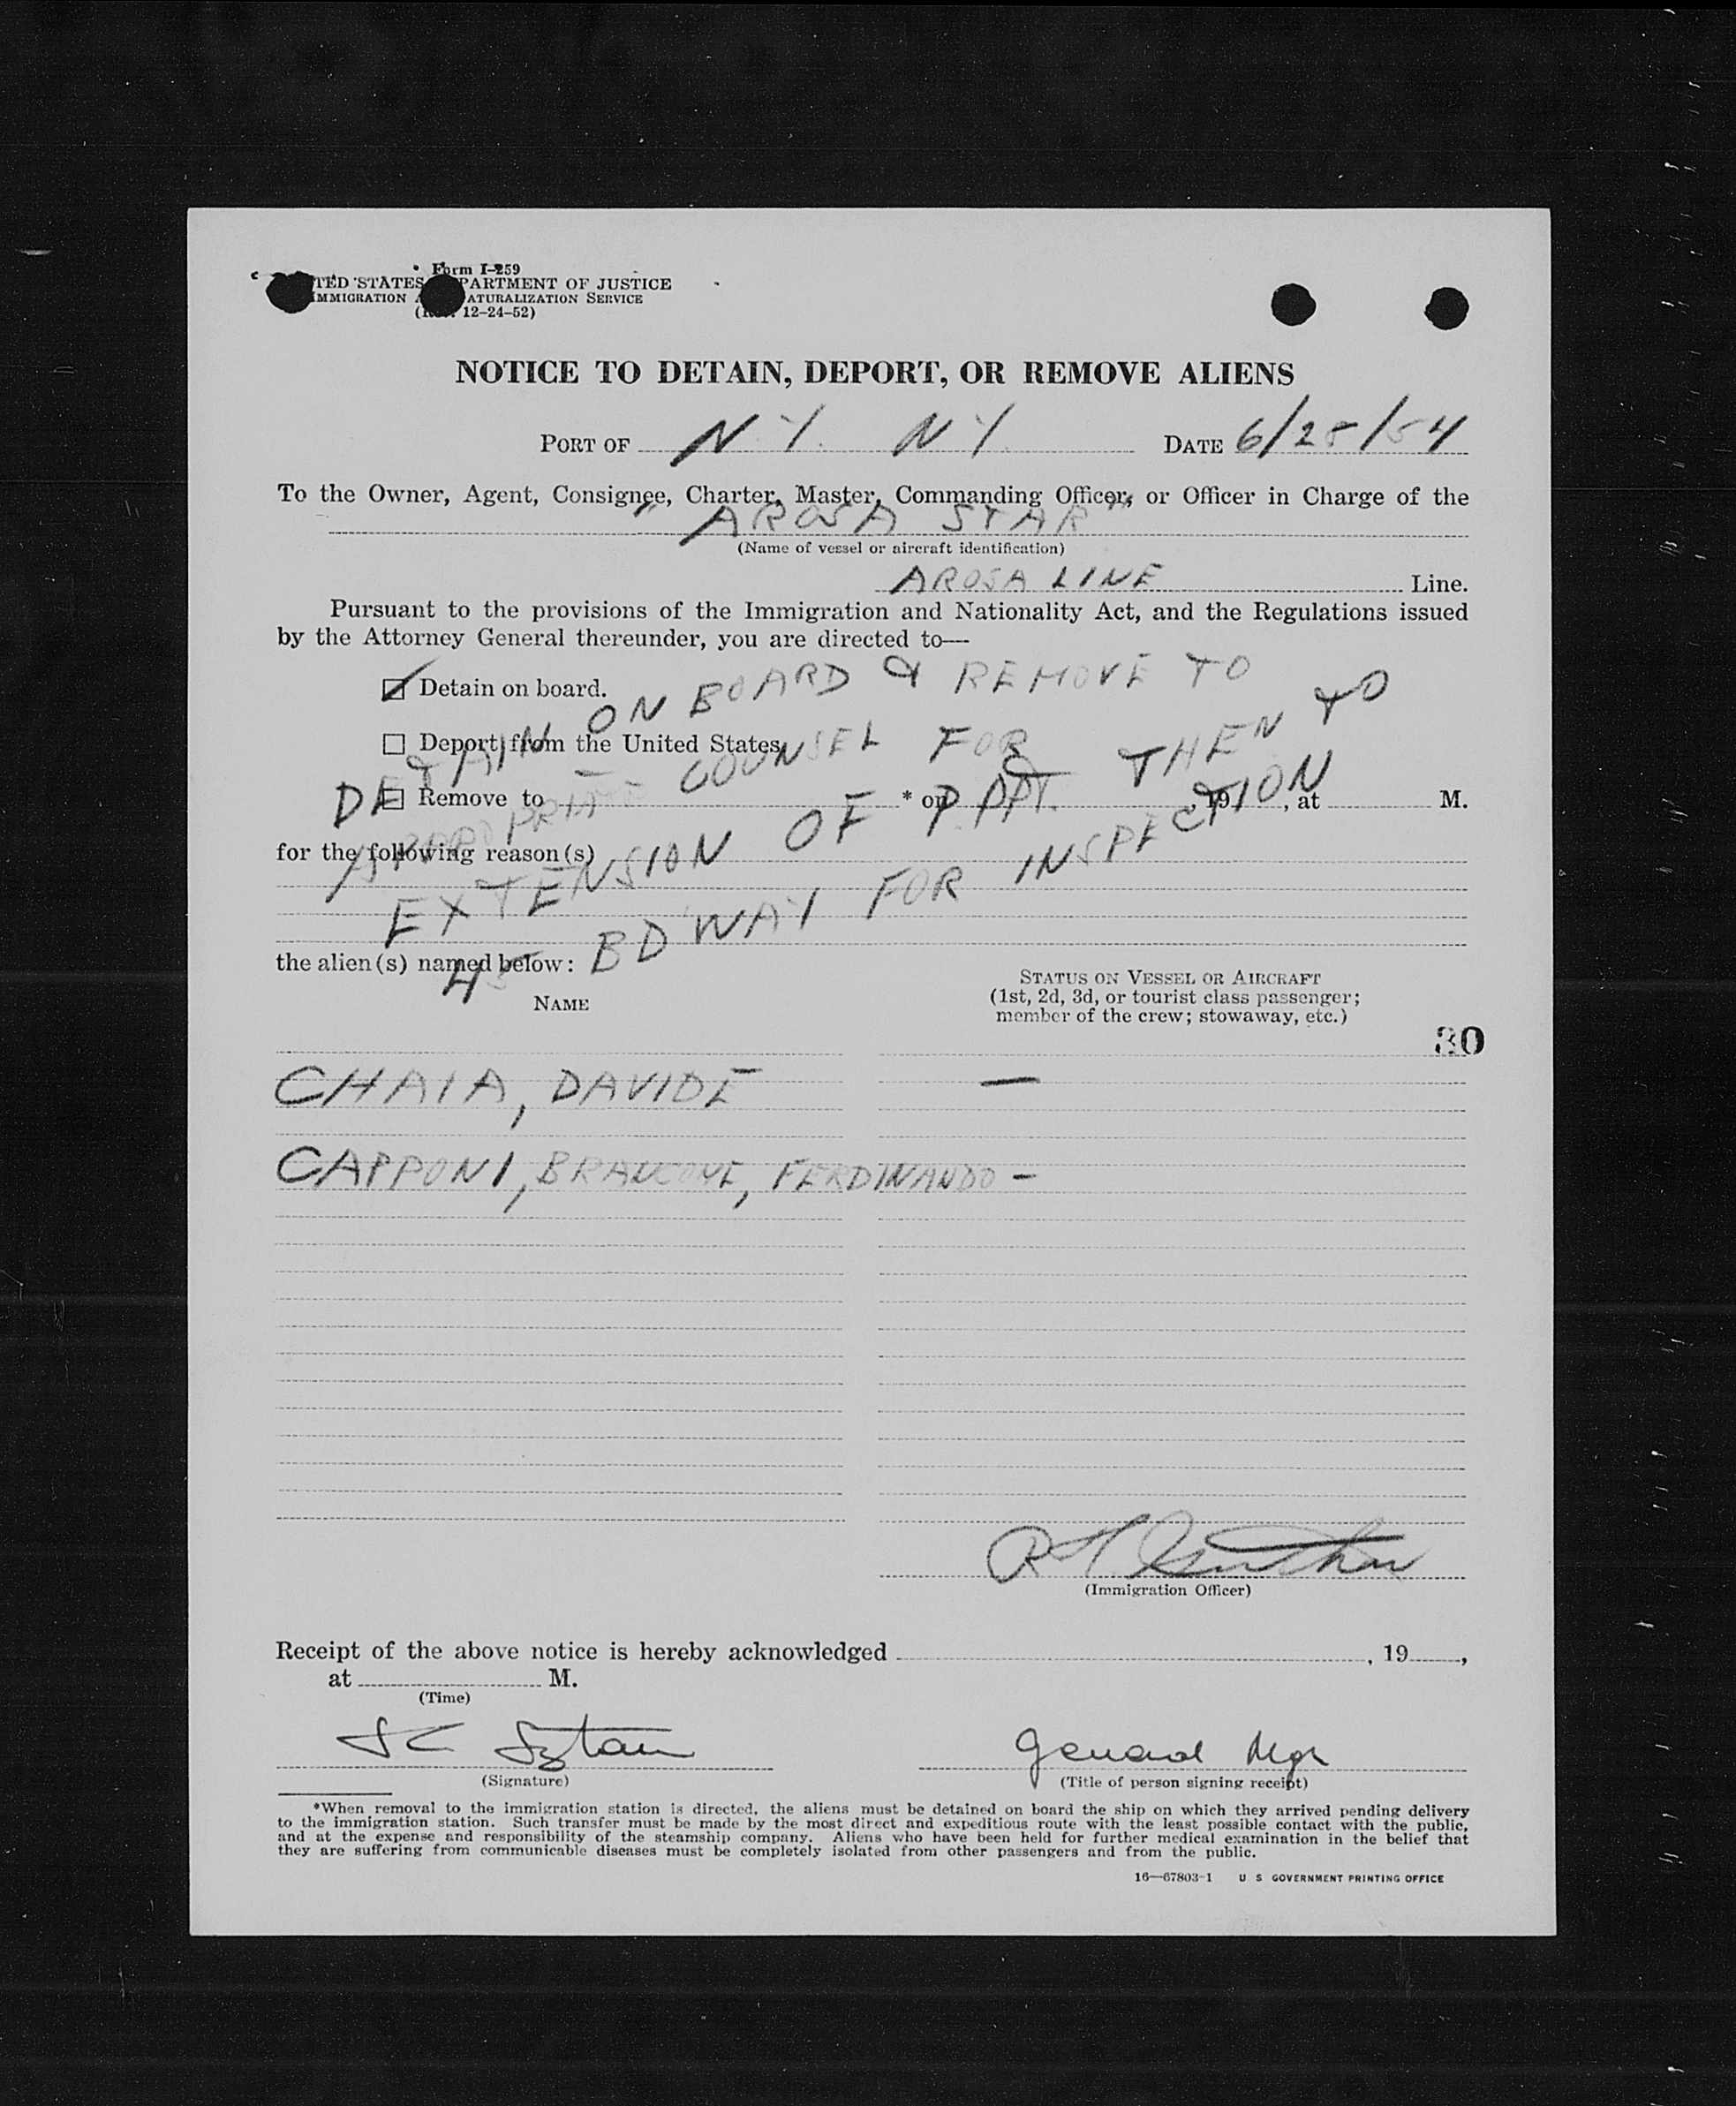 Form I-259
UNITED STATES DEPARTMENT OF JUSTICE
IMMIGRATION AND NATURALIZATION SERVICE
(Rev. 12-24-52)
NOTICE TO DETAIN, DEPORT, OR REMOVE ALIENS
PORT OF N.Y. N.Y. DATE 6/25/54
To the Owner, Agent, Consignee, Charter, Master, Commanding Officer, or Officer in Charge of the
"AROSA STAR"
(Name of vessel or aircraft identification)
AROSA LINE Line.
Pursuant to the provisions of the Immigration and Nationality Act, and the Regulations issued
by the Attorney General thereunder, you are directed to—
Detain on board.
Deport from the United States
Remove to * on , 19 , at M.
for the following reason(s)
DETAIN ON BOARD & REMOVE TO
APPROPRIATE COUNSEL FOR
EXTENSION OF PPT. THEN TO
45 BD'WAY FOR INSPECTION
the alien(s) named below:
NAME
STATUS ON VESSEL OR AIRCRAFT
(1st, 2d, 3d, or tourist class passenger;
member of the crew; stowaway, etc.)
30
CHAIA, DAVIDE —
CAPPONI, FERDINANDO —
(Immigration Officer)
Receipt of the above notice is hereby acknowledged , 19 ,
at M.
(Time)
General Mgr
(Signature)
(Title of person signing receipt)
*When removal to the immigration station is directed, the aliens must be detained on board the ship on which they arrived pending delivery
to the immigration station. Such transfer must be made by the most direct and expeditious route with the least possible contact with the public,
and at the expense and responsibility of the steamship company. Aliens who have been held for further medical examination in the belief that
they are suffering from communicable diseases must be completely isolated from other passengers and from the public.
16—67803-1 U S GOVERNMENT PRINTING OFFICE